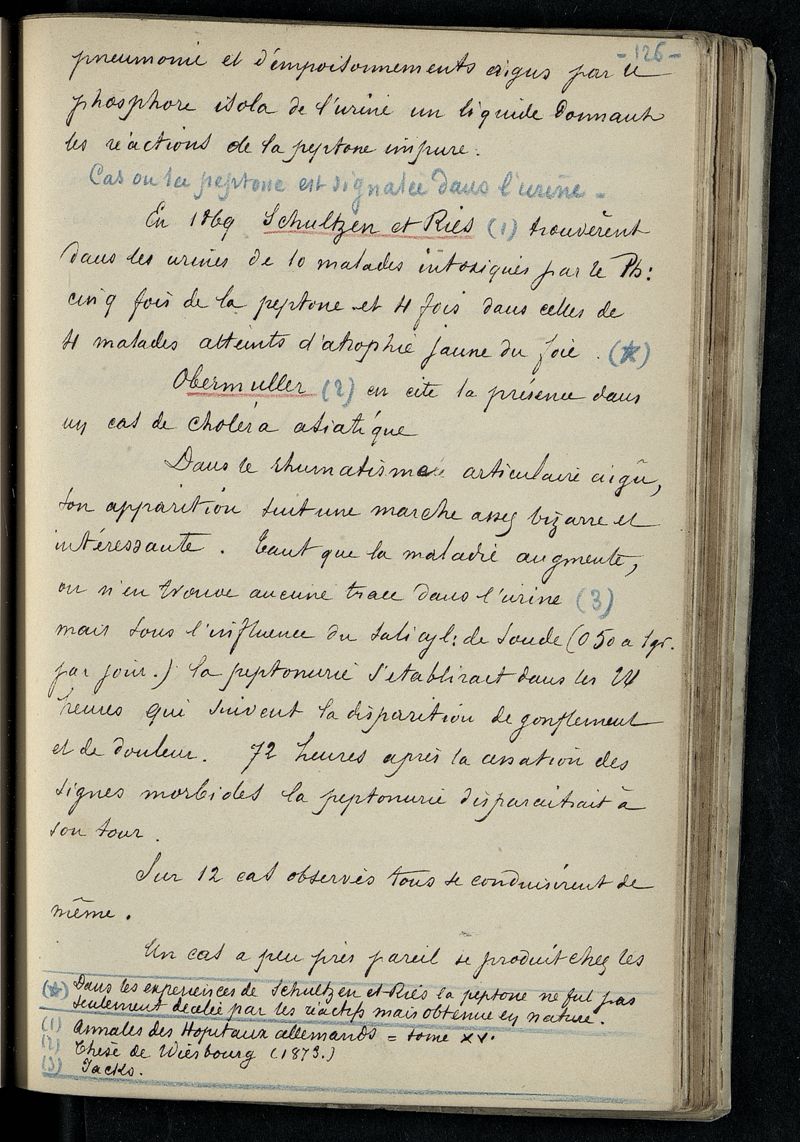 - 126 -
pneumonie et d'empoisonnements aigus par le
phosphore isola de l'urine un liquide donnant
les réactions de la peptone impure.
Cas ou la peptone est signalée dans l'urine -
En 1869 Schultzen et Riès (1) trouvèrent
dans les urines de 10 malades intoxiqués par le Ph:
cinq fois de la peptone et 4 fois dans celles de
4 malades atteints d'atrophie jaune du foie. (*)
Obermuller (2) en cite la présence dans
un cas de choléra asiatique
Dans le rhumatisme articulaire aigü,
son apparition suit une marche assez bizarre et
intéressante. Tant que la maladie augmente,
on n'en trouve aucune trace dans l'urine (3)
mais sous l'influence du salicyl: de soude (0 50 a 1 gr.
par jour.) la peptonurie s'etablirait dans les 24
heures qui suivent la disparition de gonflement
et de douleur. 72 heures après la cessation des
signes morbides la peptonurie disparaîtrait à
son tour.
Sur 12 cas observés tous se conduisirent de
même.
Un cas a peu près pareil se produit chez les
(*) Dans les experiences de Schultzen et Riès la peptone ne fut pas
seulement décelée par les réactifs mais obtenue en nature.
(1) Annales des Hopitaux allemands = tome XV.
(2) Thèse de Wiesbourg (1873.)
(3) Jacks.